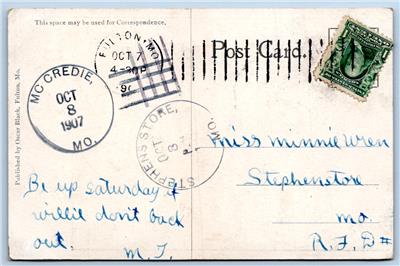 This space may be used for Correspondence.
Post Card.
FULTON, MO.
OCT 7
4-30P
190
MC CREDIE,
OCT
8
1907
MO.
STEPHENS STORE,
OCT
8
MO.
Published by Oscar Black, Fulton, Mo.
Miss Minnie Wren
Stephenstore
Mo.
R.F.D#
Be up Saturday if
Willie don't back
out.
M. T.